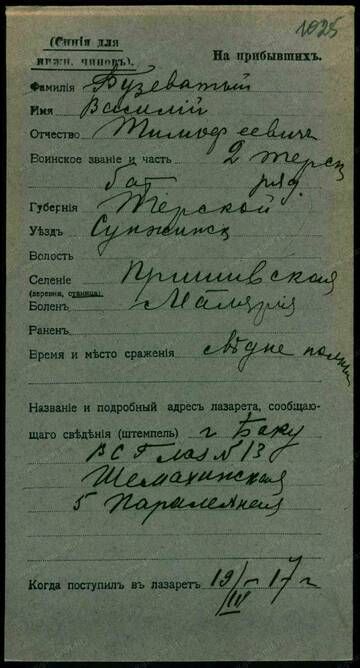 1025
(Синія для
нижн. чиновъ).
На прибывшихъ.
Фамилія Бузеватый
Имя Василій
Отчество Тимофеевичъ
Воинское званіе и часть 2 терск
бат ряд.
Губернія Терской
Уѣздъ Сунженск
Волость
Селеніе
(деревня, станица)
Боленъ Малярія
Раненъ
Время и мѣсто сраженія
Названіе и подробный адресъ лазарета, сообщаю-
щаго свѣдѣнія (штемпель) г Баку
В С Г Лаз N 13
Шемахинская
5 Паралелная
Когда поступилъ въ лазаретъ 19/III 17 г